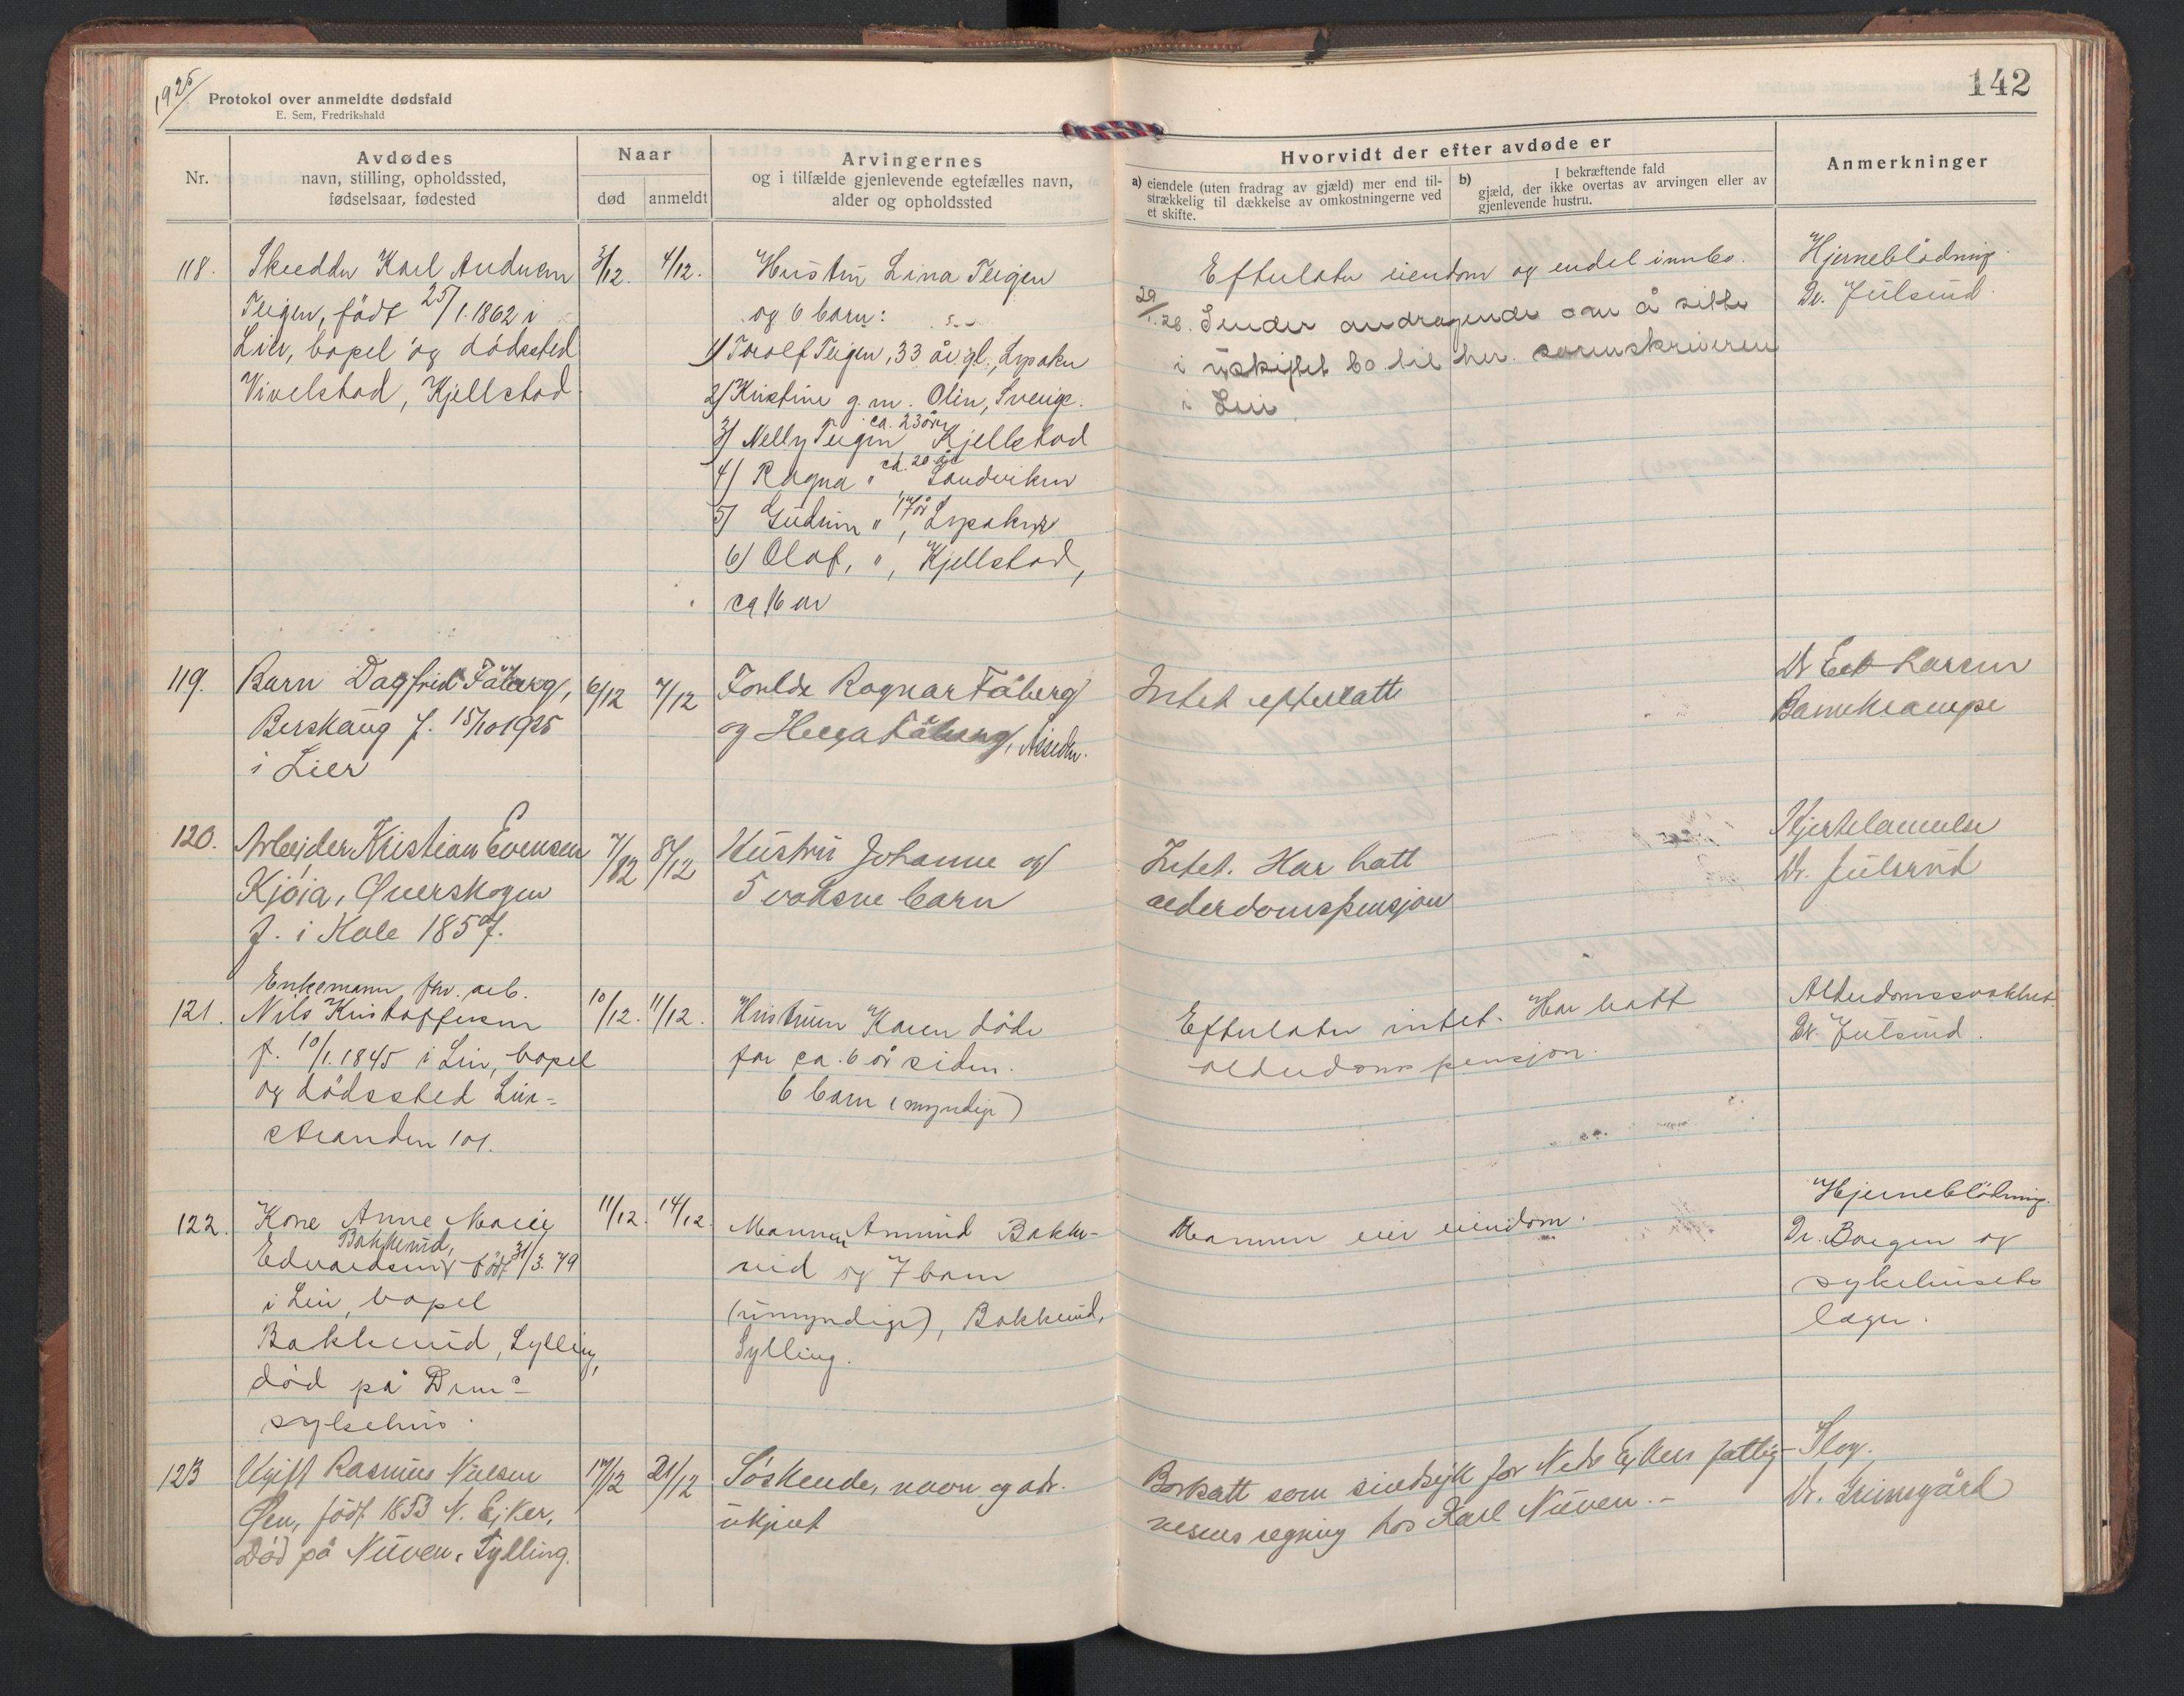 1925
142
Protokol over anmeldte dødsfald
E. Sem, Fredrikshald
Nr.
Avdødes
navn, stilling, opholdssted,
fødselsaar, fødested
Naar
død
anmeldt
Arvingernes
og i tilfælde gjenlevende egtefælles navn,
alder og opholdssted
Hvorvidt der efter avdøde er
a) eiendele (uten fradrag av gjæld) mer end til-
strækkelig til dækkelse av omkostningerne ved
et skifte.
b) I bekræftende fald
gjæld, der ikke overtas av arvingen eller av
gjenlevende hustru.
Anmerkninger
118.
Skredder Karl Andersen
Teigen, född 25/1.1862 i
Lier, bopel og dödssted
Vivelstad, Kjellstad
3/12.
4/12.
Hustru Lina Teigen
og 6 barn:
1) Torolf Teigen, 33 år gl., Lysaker
2) Kristine g. m. Olin, Sverige.
3) Nelly Teigen ca. 23 år, Kjellstad
4) Ragna " ca. 20 år Sandviken
5) Gudrun " 17 år, Lysaker
6) Olaf, ", Kjellstad,
ca 16 år
Efterlater eiendom og endel innbo.
29/1.26. Sender andragende om å sitte
i uskiftet bo til her. sorenskriveren
i Lier
Hjerneblödning.
Dr. Julsrud.
119.
Barn Dagfrid Fåberg,
Berskaug f. 15/10 1925
i Lier
6/12
7/12
Forelde Ragnar Fåberg
og Helga Fåberg,
Intet efterlatt
Dr Larsen
Barnekrampe
120.
Arbeider Kristian Evensen
Kjöia, Överskogen
f. i Hole 1857.
7/12
8/12
Hustru Johanne og
5 voksne barn
Intet. Har hatt
alderdomspensjon
Dr. Julsrud
121.
Enkemann fhv. arb.
Nils Kristoffersen
f. 10/1.1845 i Lier, bopel
og dödssted Lier-
stranden 101.
10/12.
11/12.
Hustruen Karen döde
for ca. 6 år siden.
6 barn (myndige)
Efterlater intet. Har hatt
alderdomspensjon.
Alderdomssvakhet
Dr. Julsrud.
122.
Kone Anne Marie
Bakkerud,
Edvardsen, född 31/3.79
i Lier, bopel
Bakkerud, Sylling,
död på Drm.s
sykehus.
11/12.
14/12.
Mannen Amund Bakke-
rud og 7 barn
(umyndige), Bakkerud,
Sylling.
Mannen eier eiendom.
Hjerneblödning.
Dr. Borgen og
sykehusets
læger.
123
Ugift Rasmus Nielsen
Öen, född 1853 N. Eiker,
Död på Nüven, Sylling.
17/12
21/12
Söskende, navn og adr.
ukjent
Bortsatt som sindsyk for Nedr Eikers fattig-
vesens regning hos Karl Nüven.-
Slag.
Dr. Grimsgård